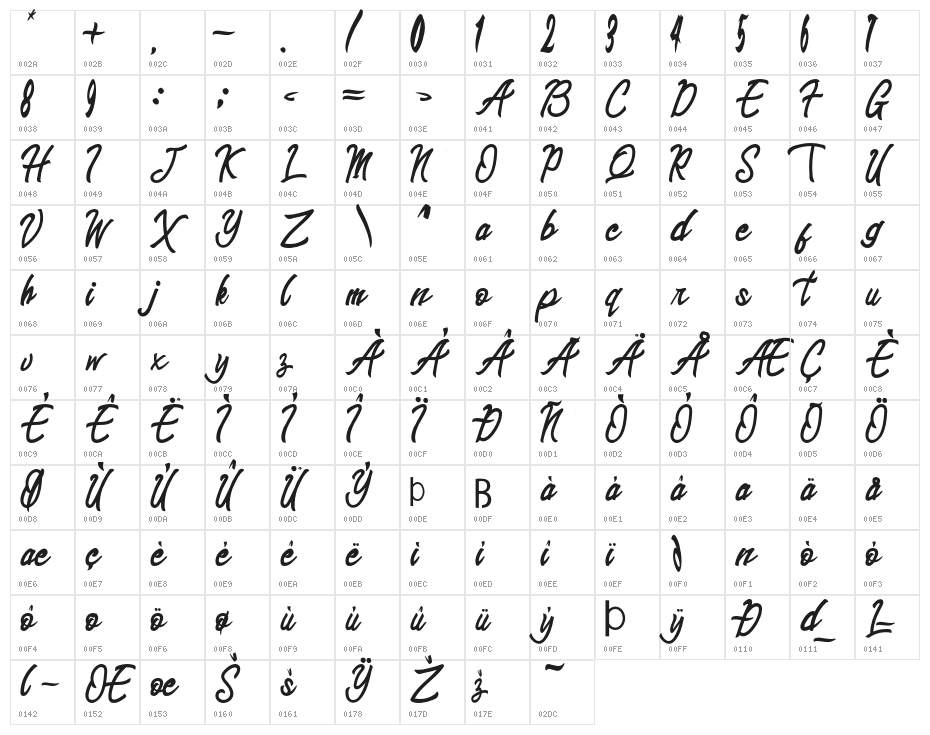 * + , - . / 0 1 2 3 4 5 6 7
002A 002B 002C 002D 002E 002F 0030 0031 0032 0033 0034 0035 0036 0037
8 9 : ; < = > A B C D E F G
0038 0039 003A 003B 003C 003D 003E 0041 0042 0043 0044 0045 0046 0047
H I J K L M N O P Q R S T U
0048 0049 004A 004B 004C 004D 004E 004F 0050 0051 0052 0053 0054 0055
V W X Y Z \ ^ a b c d e f g
0056 0057 0058 0059 005A 005C 005E 0061 0062 0063 0064 0065 0066 0067
h i j k l m n o p q r s t u
0068 0069 006A 006B 006C 006D 006E 006F 0070 0071 0072 0073 0074 0075
v w x y z À Á Â Ã Ä Å Æ Ç È
0076 0077 0078 0079 007A 00C0 00C1 00C2 00C3 00C4 00C5 00C6 00C7 00C8
É Ê Ë Ì Í Î Ï Ð Ñ Ò Ó Ô Õ Ö
00C9 00CA 00CB 00CC 00CD 00CE 00CF 00D0 00D1 00D2 00D3 00D4 00D5 00D6
Ø Ù Ú Û Ü Ý Þ ß à á â ã ä å
00D8 00D9 00DA 00DB 00DC 00DD 00DE 00DF 00E0 00E1 00E2 00E3 00E4 00E5
æ ç è é ê ë ì í î ï ð ñ ò ó
00E6 00E7 00E8 00E9 00EA 00EB 00EC 00ED 00EE 00EF 00F0 00F1 00F2 00F3
ô õ ö ø ù ú û ü ý þ ÿ Đ đ Ł
00F4 00F5 00F6 00F8 00F9 00FA 00FB 00FC 00FD 00FE 00FF 0110 0111 0141
ł Œ œ Š š Ÿ Ž ž ˜
0142 0152 0153 0160 0161 0178 017D 017E 02DC